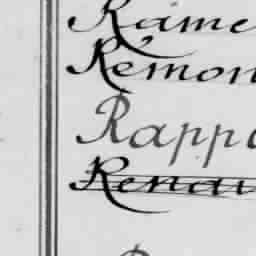 Rame
Rémon
Rappo
Renau